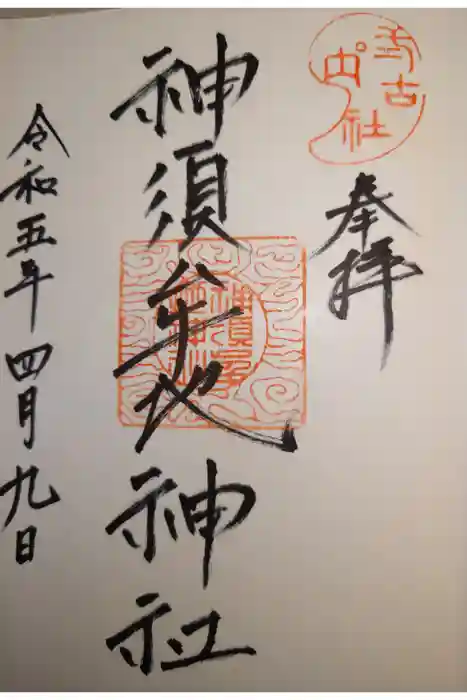 奉拝
神須牟地神社
令和五年四月九日